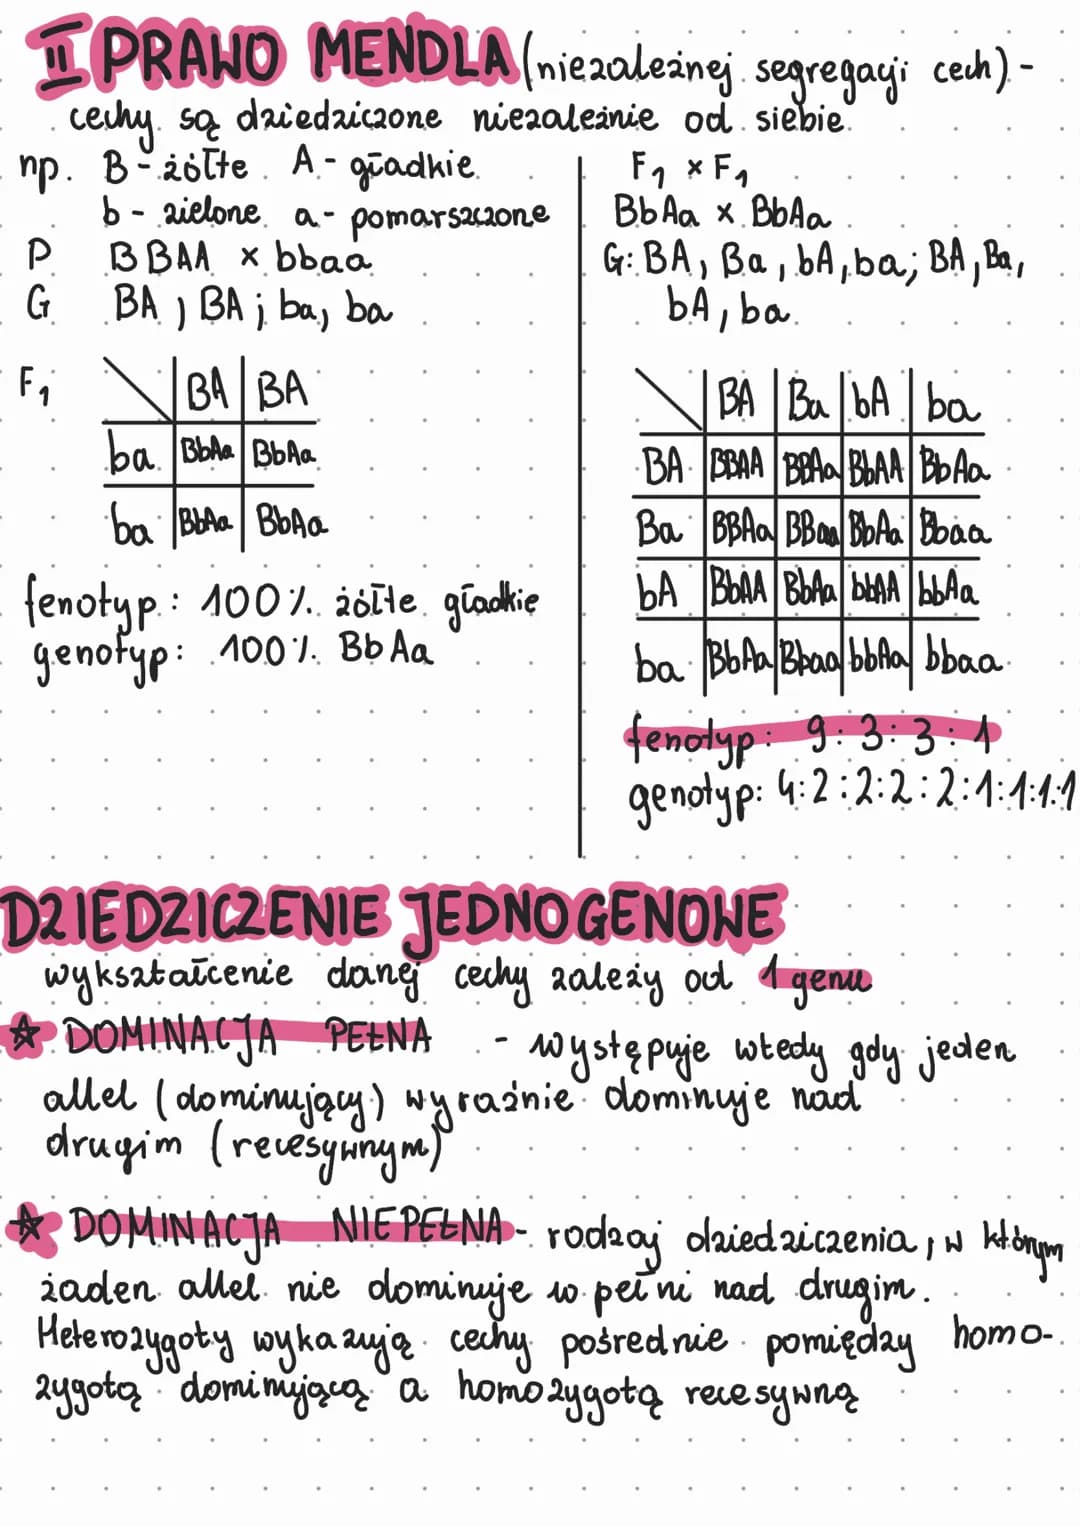 II PRAWO MENDLA (niezależnej segregacji cech) -
cechy są dziedziczone niezależnie od siebie.
np. B - żółte A - gładkie
b - zielone a - pomarszczone
P BBAA × bbaa
G BA, BA; ba, ba
F1
BA BA
ba BbAa BbAa
ba BbAa BbAa
fenotyp: 100% żółte gładkie
genotyp: 100% BbAa
F1 × F1
BbAa × BbAa
G: BA, Ba, bA, ba; BA, Ba,
bA, ba
BA Ba bA ba
BA BBAA BBAa BbAA BbAa
Ba BBAa BBaa BbAa Bbaa
bA BbAA BbAa bbAA bbAa
ba BbAa Bbaa bbAa bbaa
fenotyp: 9:3:3:1
genotyp: 4:2:2:2:2:1:1:1:1
DZIEDZICZENIE JEDNOGENOWE
wykształcenie danej cechy zależy od 1 genu
☆ DOMINACJA PEŁNA - występuje wtedy gdy jeden
allel (dominujący) wyraźnie dominuje nad
drugim (recesywnym)
☆ DOMINACJA NIEPEŁNA - rodzaj dziedziczenia, w którym
żaden allel nie dominuje w pełni nad drugim.
Heterozygoty wykazują cechy pośrednie pomiędzy homo-
zygotą dominującą a homozygotą recesywną